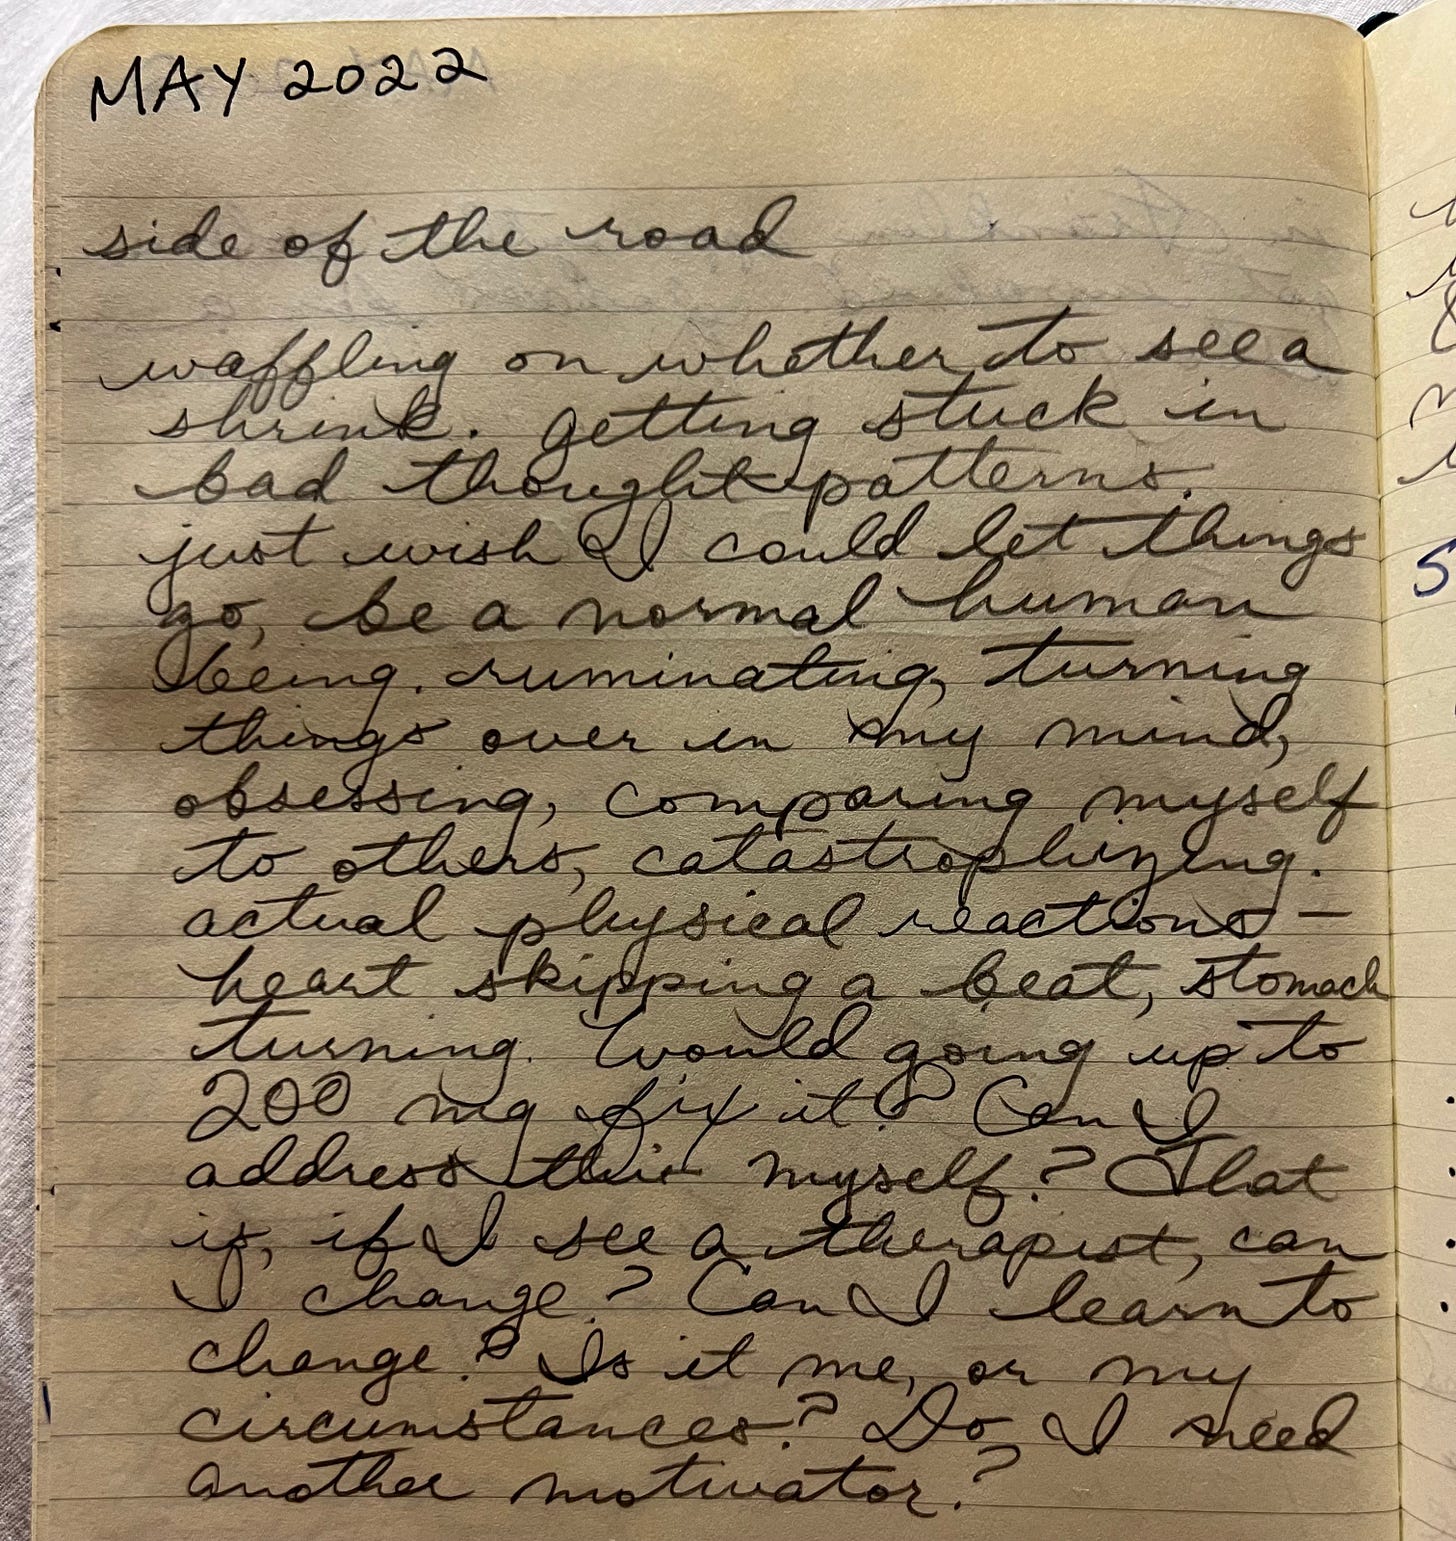 MAY 2022
side of the road
waffling on whether to see a
shrink. getting stuck in
bad thought patterns.
just wish I could let things
go, be a normal human
being. ruminating, turning
things over in my mind,
obsessing, comparing myself
to others, catastrophizing.
actual physical reactions –
heart skipping a beat, stomach
turning. Would going up to
200 mg fix it? Can I
address this myself? That
is, if I see a therapist, can
I change? Can I learn to
change? Is it me, or my
circumstances? Do I need
another motivator?